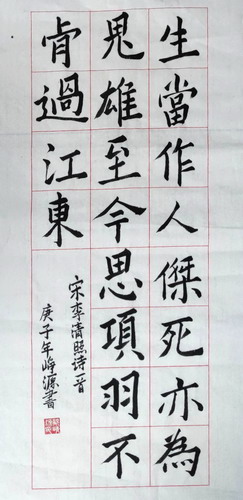 生當作人傑死亦為
鬼雄至今思項羽不
肯過江東
宋李清照诗一首
庚子年峥源書